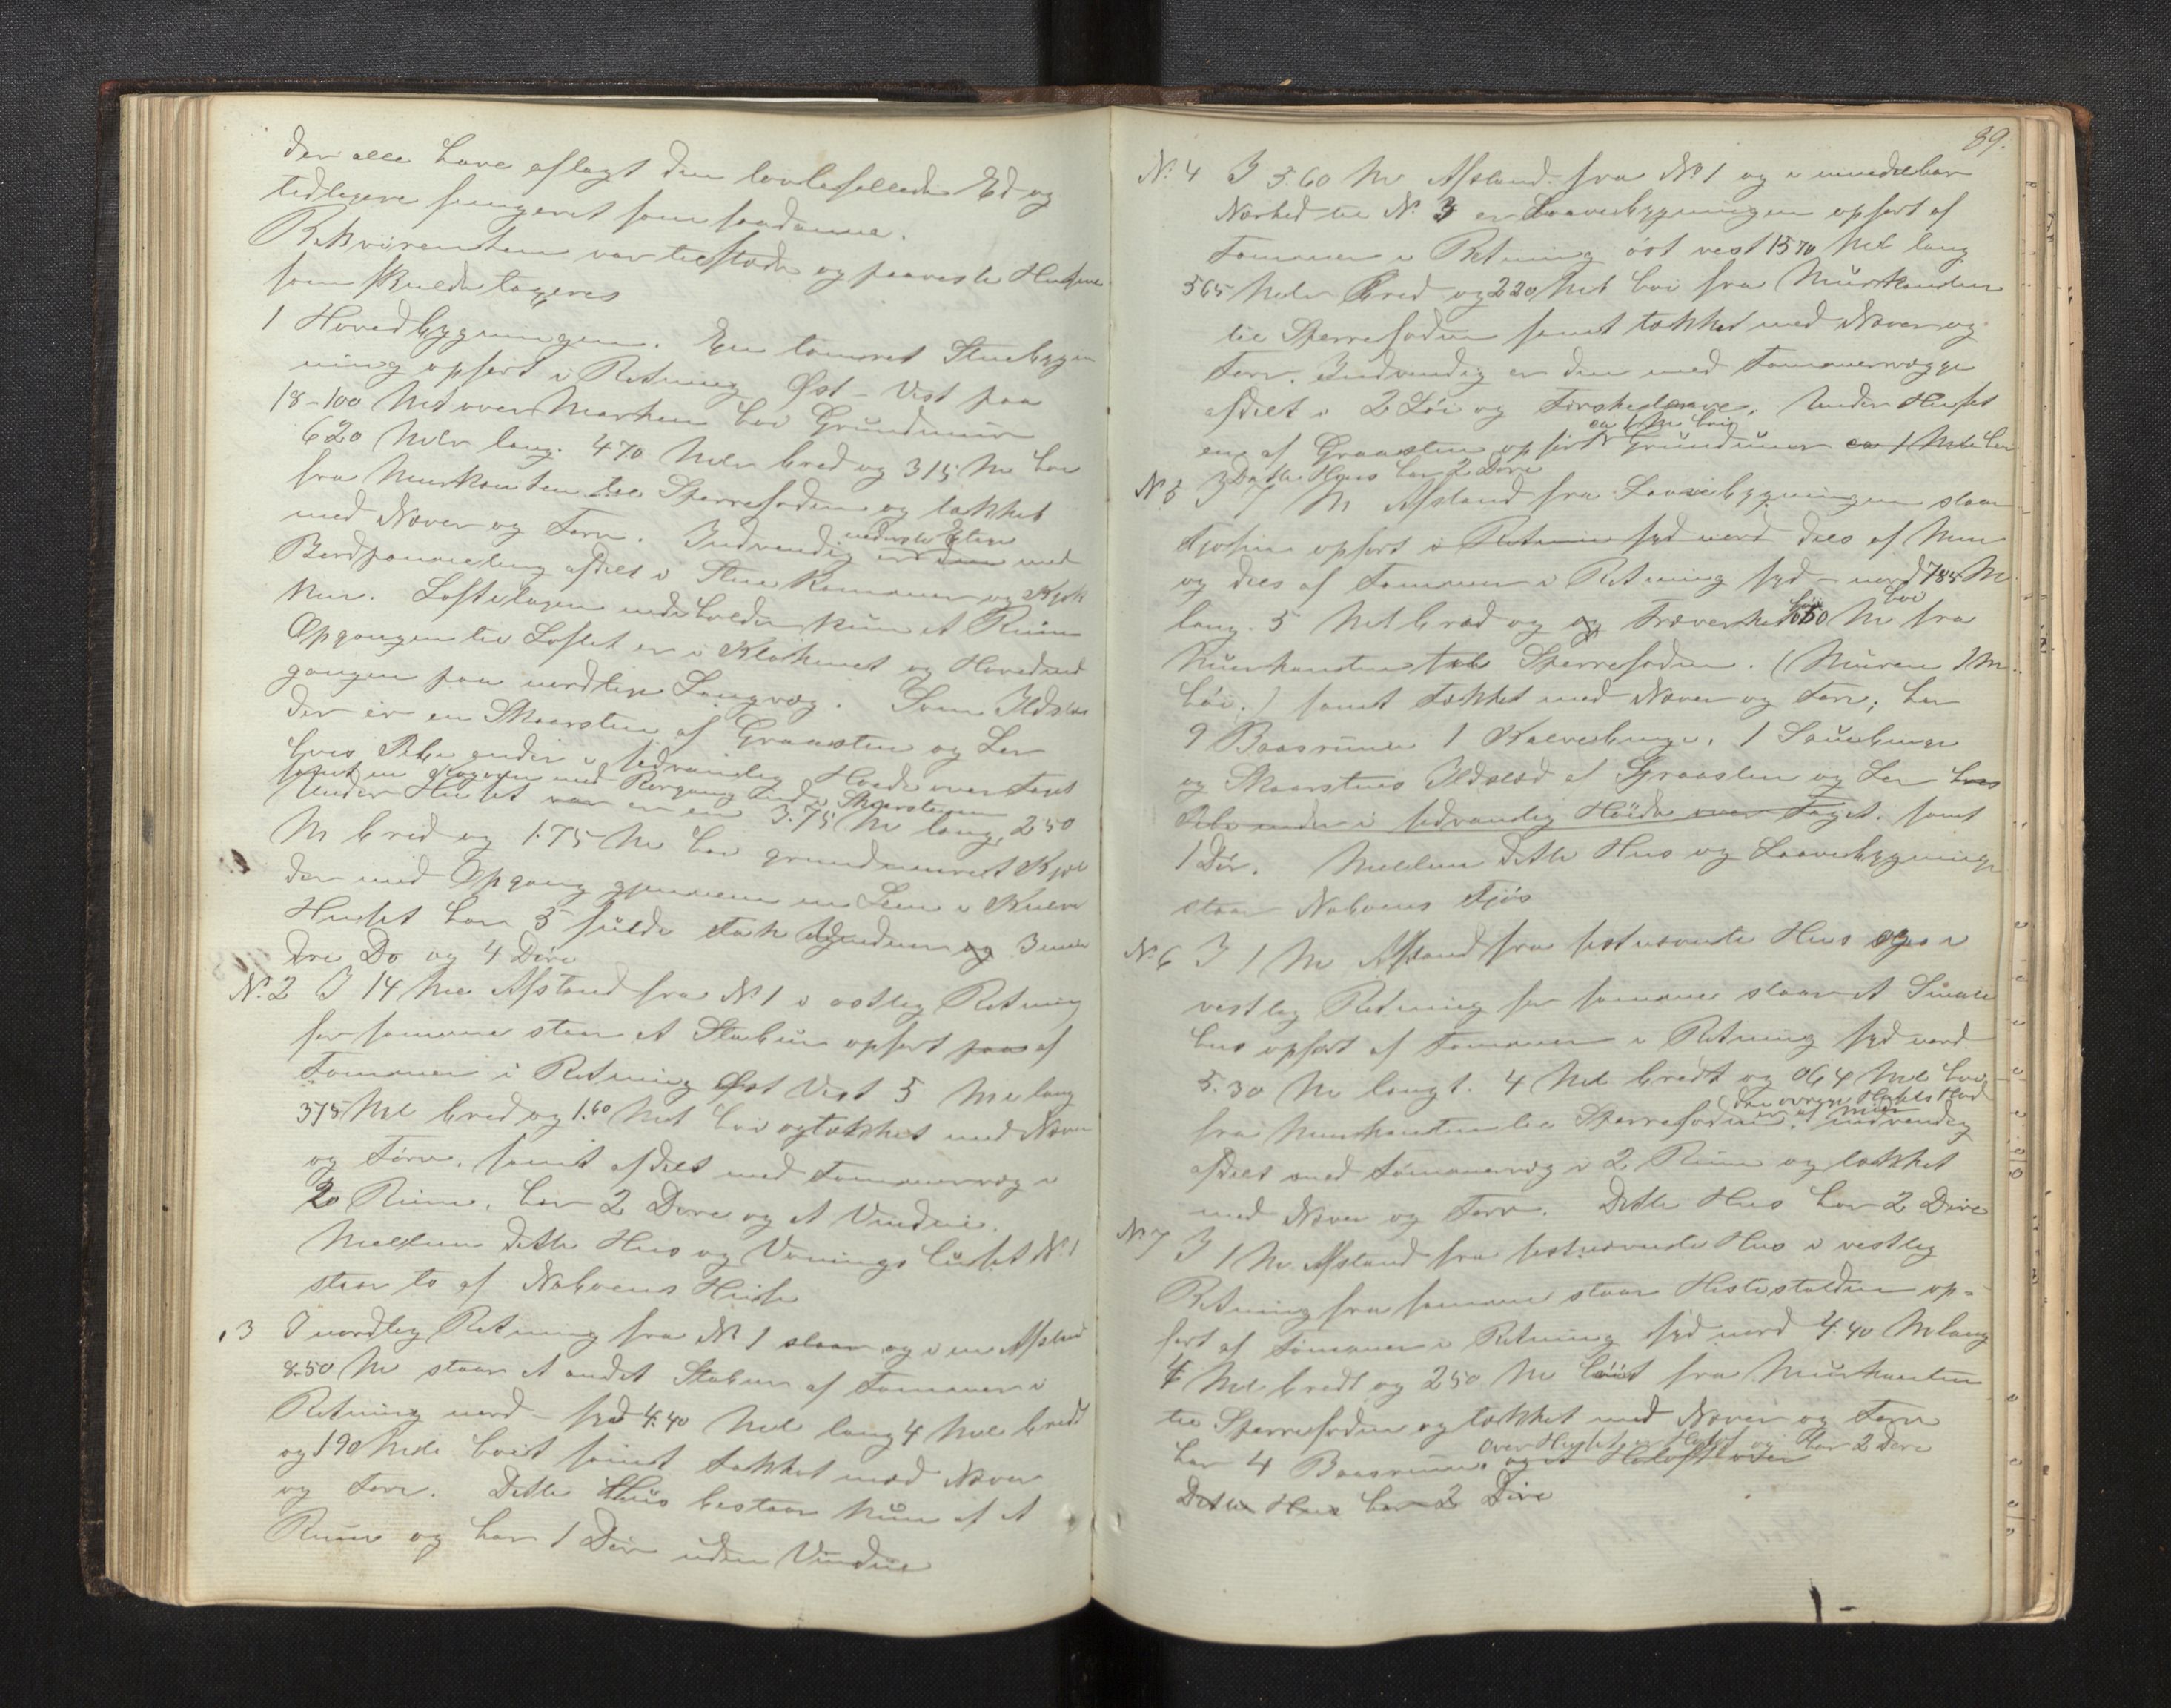 der alle have aflagt den lovbefallede Ed og
tidligere fungeret som saadanne.
Rekvirenten var tilstede og paaviste Husene
som skulde taxeres
1 Hovedbygningen. En tømret Stuebygn
ning opført i Retning Øst - Vest paa
18-100 Met over Marken høi Grundmur
620 Meter lang. 470 Meter bred og 315 M høi
fra Murkanten til Sperrefoden og tækket
med Næver og Torv. Indvendig er den nederste Etage med
Bordpanneling afdelt i Stue Kammer og Kjøk
ken. Loftetagen indeholder kun et Rum
Opgangen til Loftet er i Kløkenet og Hovedind
gangen paa nordlige Langvæg. Som Ildsted
der er en Skorsten af Graasten og Ler
hvis Pibe ender i sedvanlig Høide over Taget
samt en Kogeovn med Rørgang ind i Skorstenen
Under Huset var er en 3.75 M lang, 250
M bred og 1.75 M høi grundmuret Kjæl
der med Opgang gjennem en Lem i
Huset har 5 fulde Fak Vinduer og 3 min
dre Do og 4 Døre
No. 2 I 14 Met Afstand fra No 1 i østlig Retning
for samme staar et Stabur opført paa af
Tømmer i Retning Øst Vest 5 Me lang
375 Met bred og 1.60 Met høi og tækket med Næver
og Törv, samt afdelt med Tømmervæg i
2 Rum, har 2 Døre og et Vindue.
Mellem dette Hus og Vaaningshuset No 1
staar to af Naboens Huse
3 I nordlig Retning fra No 1 staar og i en Afstand
8.50 M staar et andet Stabur af Tømmer i
Retning nord - syd 4.40 Met lang 4 Met bredt
og 190 Mete høit samt tækket med Næver
og Torv. Dette Hus bestaar kun af et
Rum og har 1 Dør uden Vindue
89.
No. 4 I 5.60 M Afstand fra No 1 og i umiddelbar
Nærhed til No. 3 er Laavebygningen opført af
Tømmer i Retning öst vest 1570 Met lang
565 Meter Bred og 220 Met høi fra Murkanten
til Sperrefoden samt tækket med Næver og
Torv. Indvendig er den med Tømmervægge
afdelt i 2 Löer og Tørskelaave. Under Huset
en af Graasten opført Grundmur ca 1 M høi ca 1 Mete høi
Dette Hus har 2 Døre
No. 5 I 7 M Afstand fra Laavebygningen staar
Fjøsen opført i Retning syd nord dels af Mur
og dels af Tømmer i Retning syd - nord 785 M.
lang. 5 Met bred og og Træverket M høi fra
Murkanten til Sperrefoden. (Muren 1 M.
høi.) samt Tækket med Næver og Torv; har
9 Baasrum 1 Kalvebinge, 1 Sauebinge
og Skorstens Ildsted af Graasten og Ler hvis
Pibe ender i sedvanlig Höide over Taget. samt
1 Dör. Mellem dette Hus og Laavebygningen
staar Naboens Fjös
No. 6 I 1 M Afstand fra sistnævnte Hus og i
vestlig Retning for samme staar et Smale
hus opført af Tømmer i Retning syd nord
5.30 M langt. 4 Met bredt og 064 Met høi
fra Murkanten til Sperrefoden. Indvendig
er af mur
afdelt med Tømmervæg i 2 Rum og tækket
med Næver og Torv. Dette Hus har 2 Døre
No 7 I 1 M. Afstand fra sistnævnte Hus i vestlig
Retning fra samme staar Hestestalden op-
ført af Tømmer i Retning syd nord 4.40 M lang
4 Met bredt og 250 M höit fra Murkanten
til Sperrefoden og tækket med Næver og Torv
har 4 Baasrum. over Huset er Høloft og har 2 Døre
og et Høloft over
Dette Hus har 2 Döre